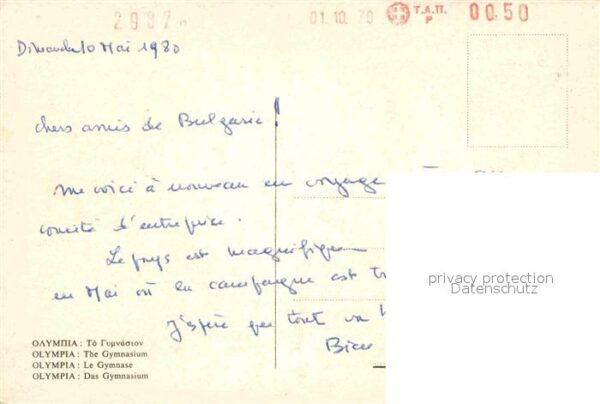 29379 01.10.79 Τ.Α.Π. P 00.50
Dimanche 10 Mai 1980
chers amis de Bulgarie !
me voici à nouveau en voyage
comité d'entreprise.
Le pays est magnifique
en Mai où la campagne est
J'espère que tout va
privacy protection
Datenschutz
ΟΛΥΜΠΙΑ : Τό Γυμνάσιον
OLYMPIA : The Gymnasium
OLYMPIA : Le Gymnase
OLYMPIA : Das Gymnasium